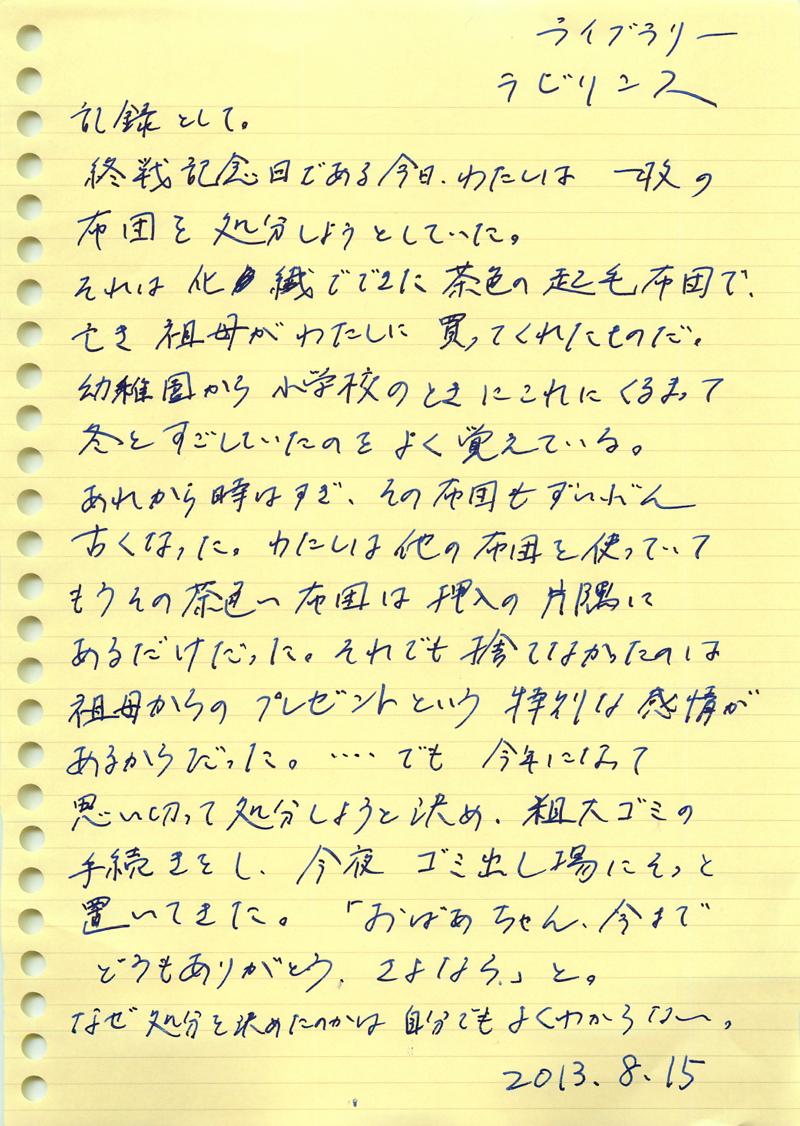 ライブラリー
ラビリンス
記録として。
終戦記念日である今日、わたしは 一枚の
布団を 処分しようとしていた。
それは 化繊でできた 茶色の 起毛布団で、
亡き 祖母が わたしに 買ってくれたものだ。
幼稚園から 小学校の ときに これに くるまって
冬を すごしていたのを よく 覚えている。
あれから 時はすぎ、その 布団も ずいぶん
古くなった。わたしは 他の 布団を 使っていて
もう その 茶色い 布団は 押入の 片隅に
あるだけだった。それでも 捨てなかったのは
祖母からの プレゼントという 特別な 感情が
あるからだった。‥‥ でも 今年になって
思い切って 処分しようと 決め、粗大ゴミの
手続きをし、今夜 ゴミ出し場に そっと
置いてきた。「おばあちゃん、今まで
どうもありがとう、さよなら。」と。
なぜ 処分を 決めたのかは 自分でも よくわからない。
2013.8.15